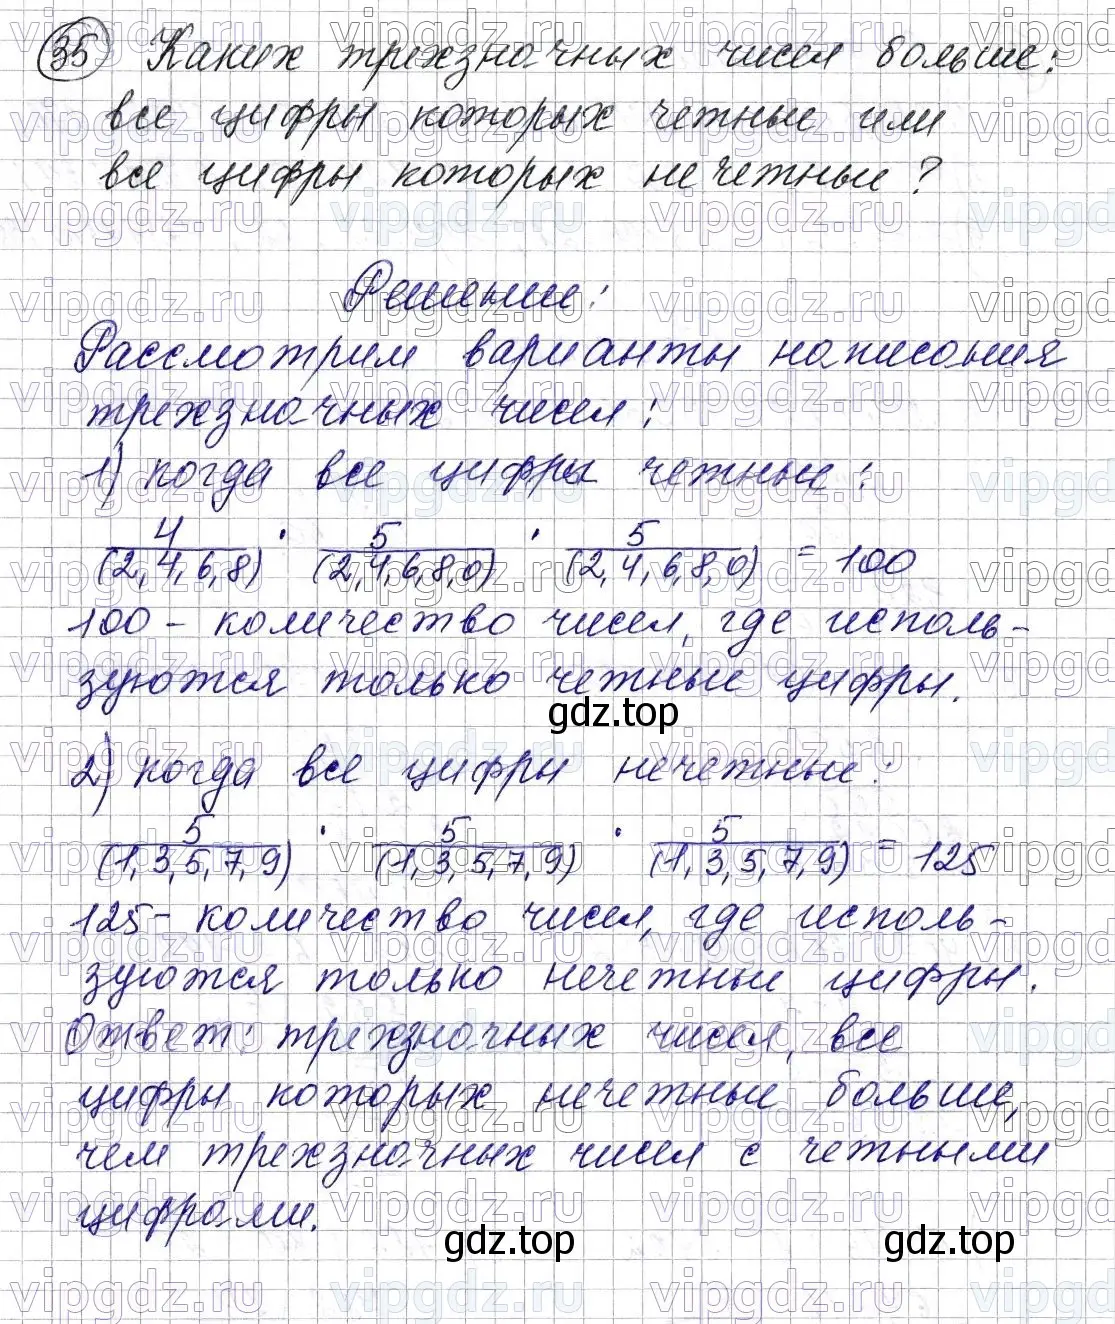 35 Каких трехзначных чисел больше:
все цифры которых четные или
все цифры которых нечетные?
Решение:
Рассмотрим варианты написания
трехзначных чисел:
1) когда все цифры четные:
4 · 5 · 5
(2,4,6,8) (2,4,6,8,0) (2,4,6,8,0) = 100
100 - количество чисел, где исполь-
зуются только четные цифры.
gdz.top
2) когда все цифры нечетные:
5 · 5 · 5
(1,3,5,7,9) (1,3,5,7,9) (1,3,5,7,9) = 125
125 - количество чисел, где исполь-
зуются только нечетные цифры.
Ответ: трехзначных чисел, все
цифры которых нечетные больше,
чем трехзначных чисел с четными
цифрами.
gdz.top gdz.top
vipgdz.ru